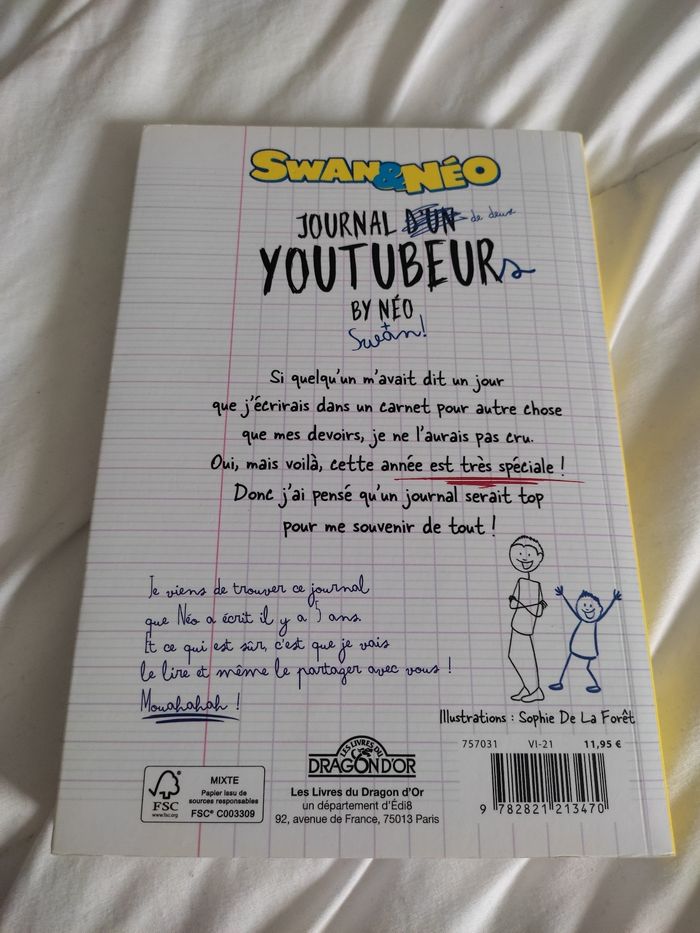 SWAN&NÉO
JOURNAL D'UN de deux
YOUTUBEURs
BY NÉO
+
Swan!
Si quelqu'un m'avait dit un jour
que j'écrirais dans un carnet pour autre chose
que mes devoirs, je ne l'aurais pas cru.
Oui, mais voilà, cette année est très spéciale !
Donc j'ai pensé qu'un journal serait top
pour me souvenir de tout !
Je viens de trouver ce journal
que Néo a écrit il y a 5 ans.
Et ce qui est sûr, c'est que je vais
le lire et même le partager avec vous !
Mouahahah !
Illustrations : Sophie De La Forêt
757031 VI-21 11,95 €
LES LIVRES DU
DRAGON D'OR
Les Livres du Dragon d'Or
un département d'Édi8
92, avenue de France, 75013 Paris
FSC
www.fsc.org
MIXTE
Papier issu de
sources responsables
FSC® C003309
9 782821 213470